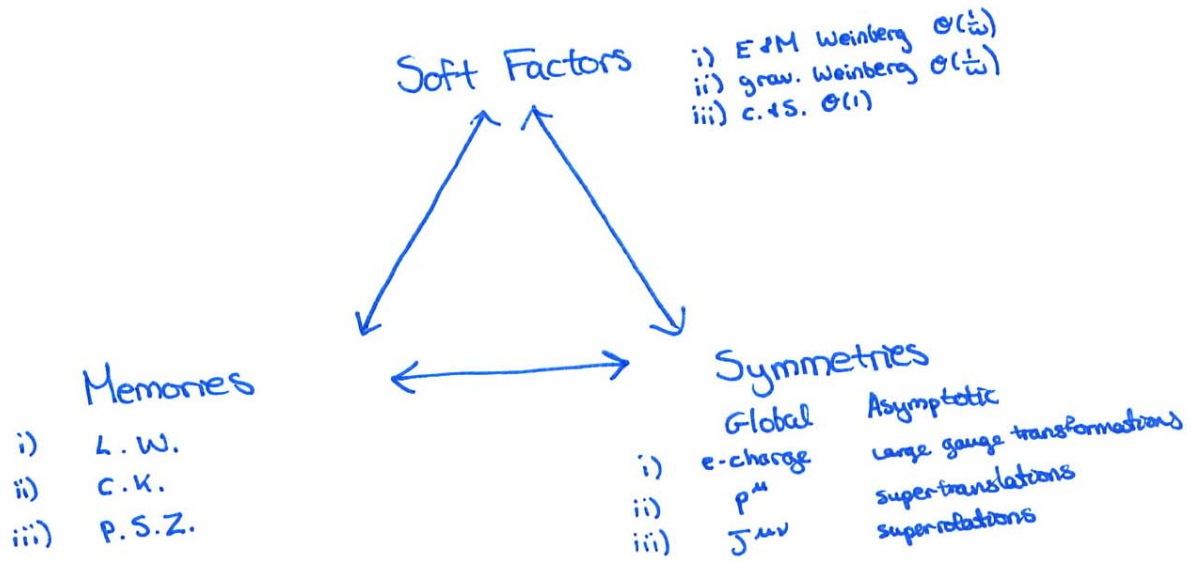 Soft Factors
i) E&M Weinberg O(1/ω)
ii) grav. Weinberg O(1/ω)
iii) C.&S. O(1)
Memories
i) L.W.
ii) C.K.
iii) P.S.Z.
Symmetries
Global Asymptotic
i) e-charge Large gauge transformations
ii) P^μ supertranslations
iii) J^μν superrotations